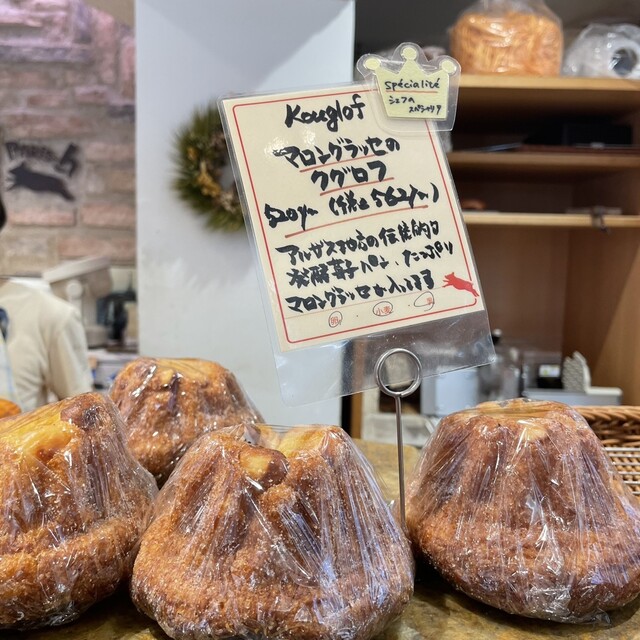 spécialité
シェフの
スペシャリテ
Kouglof
マロングラッセの
クグロフ
520yen (税込562yen)
アルザス地方の伝統的な
発酵菓子パン。たっぷり
マロングラッセが入ってます
卵 小麦 乳